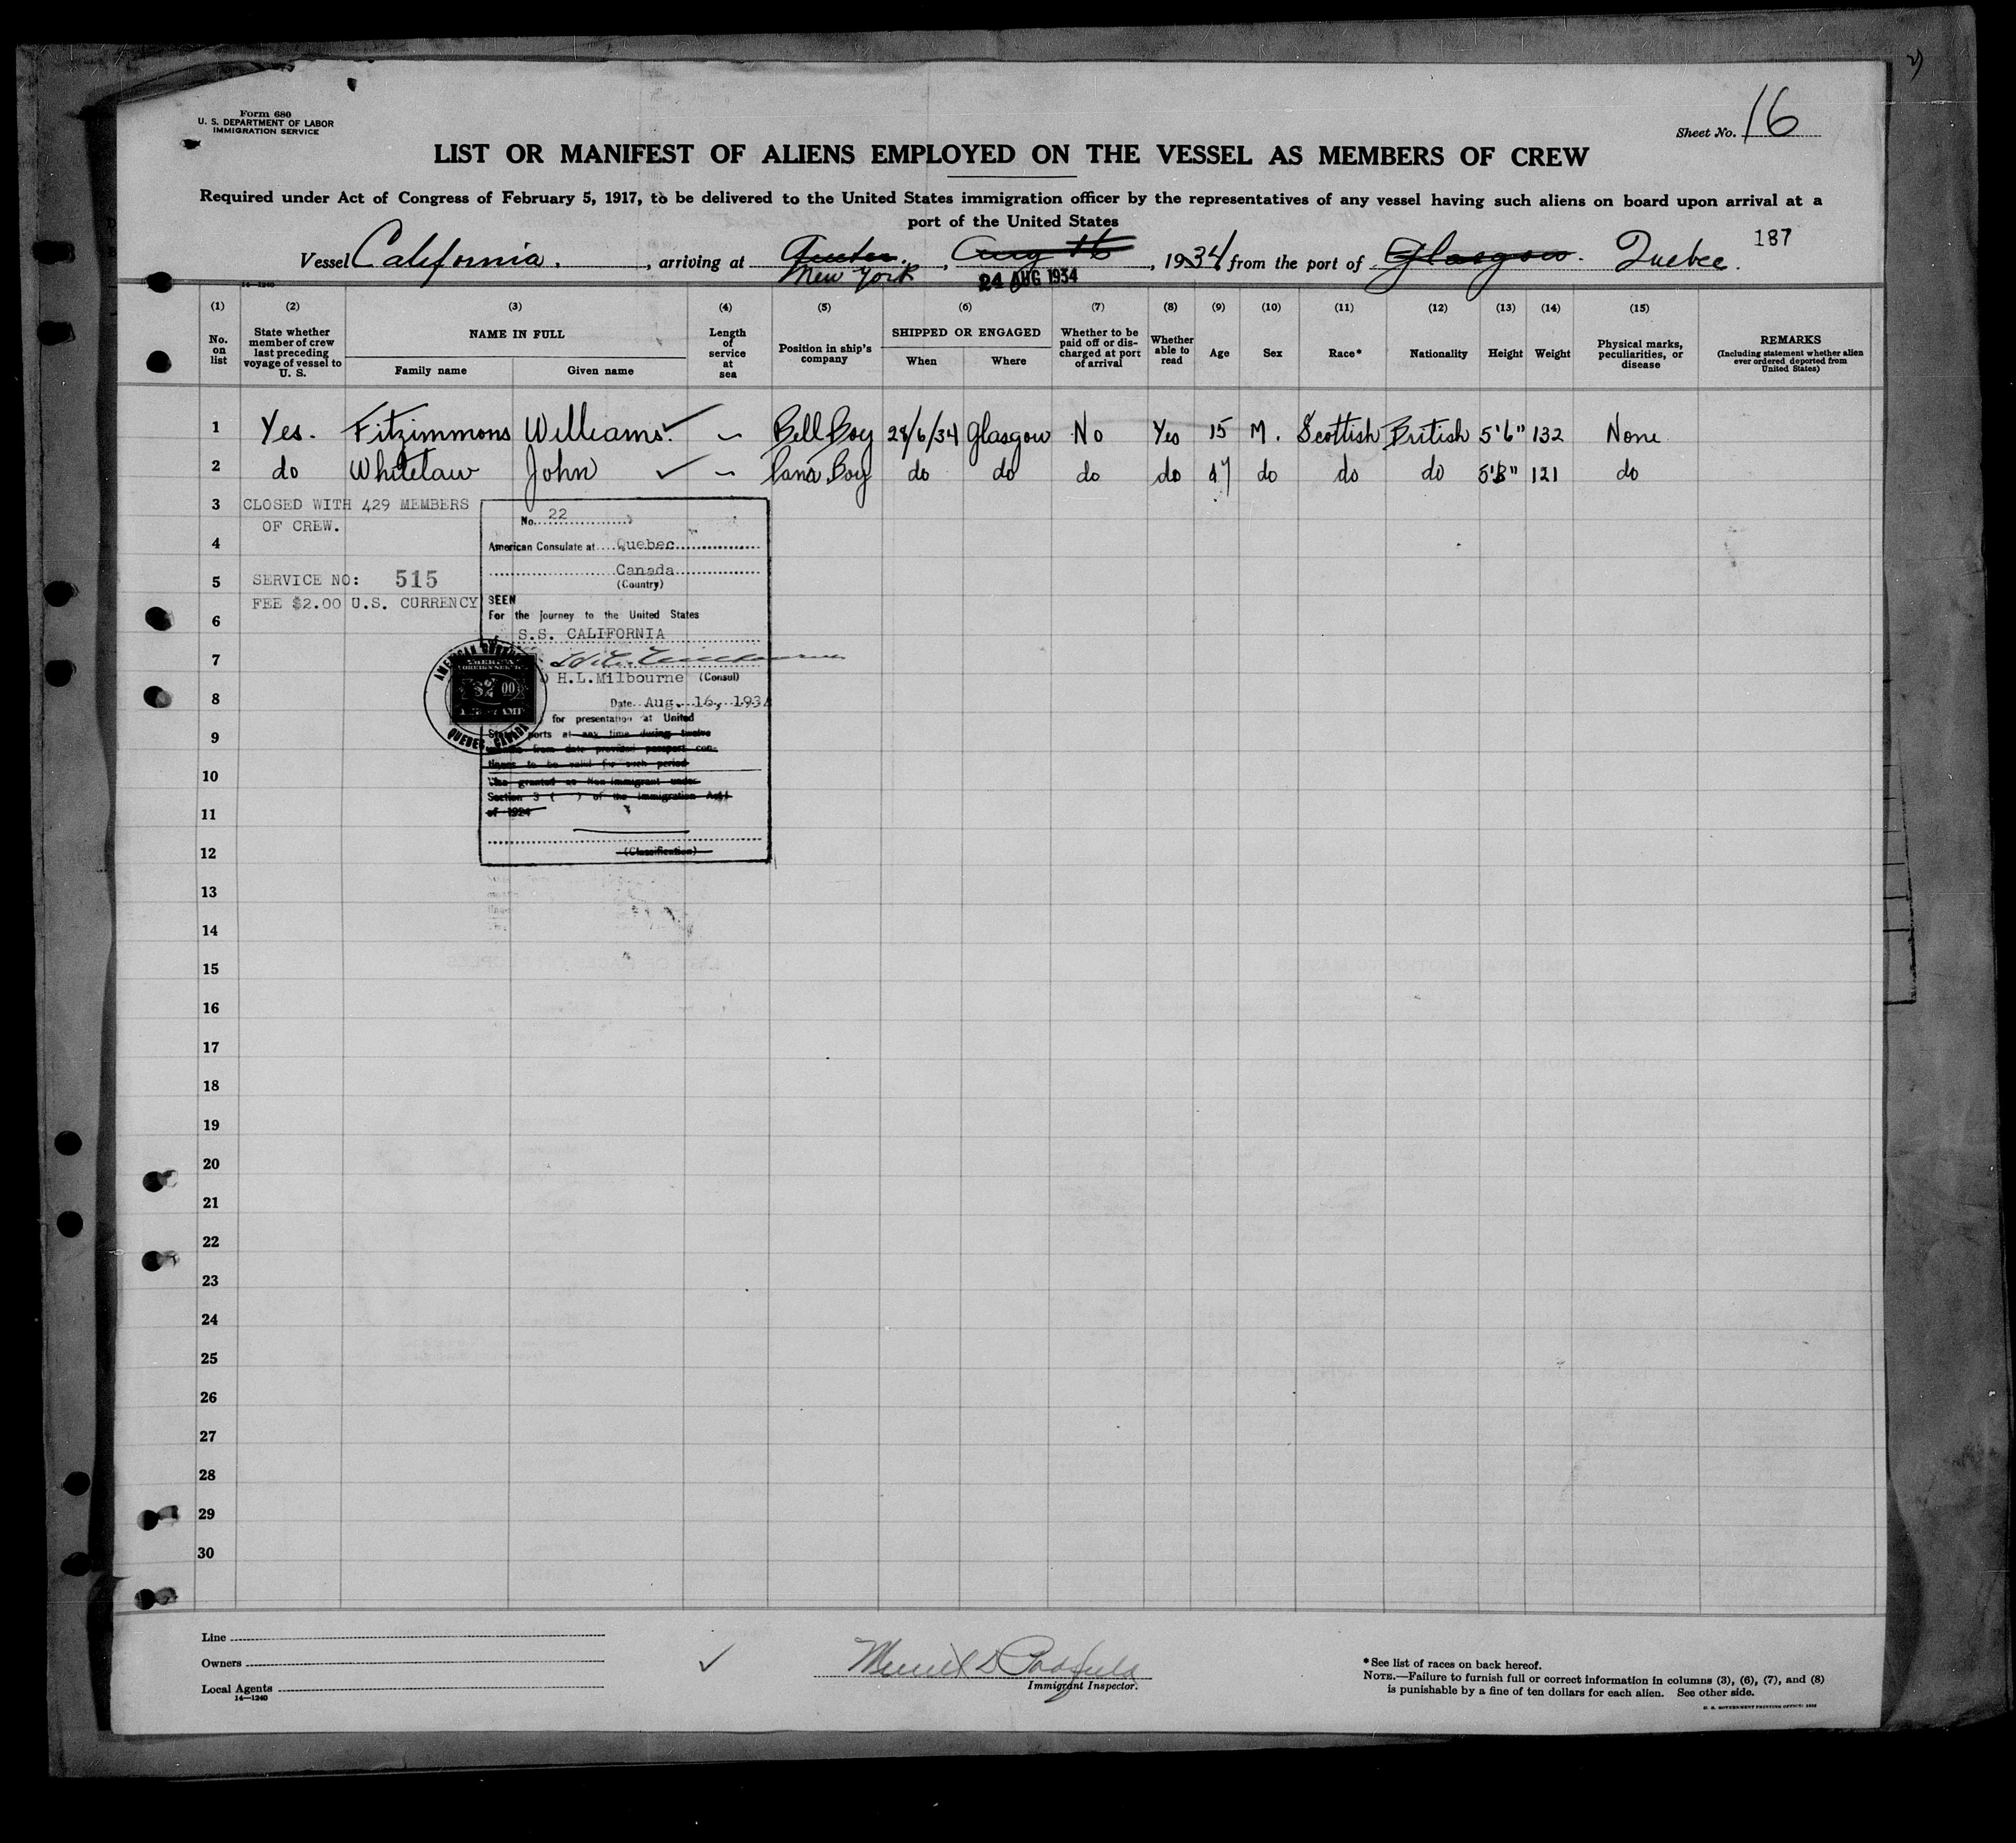 Form 680
U. S. DEPARTMENT OF LABOR
IMMIGRATION SERVICE
Sheet No. 16
LIST OR MANIFEST OF ALIENS EMPLOYED ON THE VESSEL AS MEMBERS OF CREW
Required under Act of Congress of February 5, 1917, to be delivered to the United States immigration officer by the representatives of any vessel having such aliens on board upon arrival at a
port of the United States
187
Vessel California. , arriving at Quebec. , Aug 16 , 1934 from the port of Glasgow. Quebec.
New York 24 AUG 1934
14—1240
(1) (2) (3) (4) (5) (6) (7) (8) (9) (10) (11) (12) (13) (14) (15)
No. on list State whether member of crew last preceding voyage of vessel to U. S. NAME IN FULL Family name Given name Length of service at sea Position in ship's company SHIPPED OR ENGAGED When Where Whether to be paid off or discharged at port of arrival Whether able to read Age Sex Race* Nationality Height Weight Physical marks, peculiarities, or disease REMARKS (Including statement whether alien ever ordered deported from United States)
1 Yes. Fitzimmons Williams. – Bell Boy 28/6/34 Glasgow No Yes 15 M. Scottish British 5'6" 132 None
2 do Whitelaw John – Boy do do do do 17 do do do 121 do
3 CLOSED WITH 429 MEMBERS
OF CREW.
No. 22
4 American Consulate at Quebec
Canada
(Country)
5 SERVICE NO: 515
FEE $2.00 U.S. CURRENCY
SEEN
For the journey to the United States
6 S.S. CALIFORNIA
7
H.L.Milbourne (Consul)
8 Date Aug. 16, 1934
for presentation at United
9 States ports at any time during twelve
months from date provided passport con-
tinues to be valid for such period
10 Visa granted as Non-immigrant under
Section 3 ( ) of the Immigration Act
11 of 1924
12 (Classification)
AMERICAN
AMERICAN
FOREIGN SERVICE
$2 00
FEE STAMP
QUEBEC, CANADA
13
14
15
16
17
18
19
20
21
22
23
24
25
26
27
28
29
30
Line
Owners
Local Agents
14—1240
Immigrant Inspector.
* See list of races on back hereof.
NOTE.—Failure to furnish full or correct information in columns (3), (6), (7), and (8)
is punishable by a fine of ten dollars for each alien. See other side.